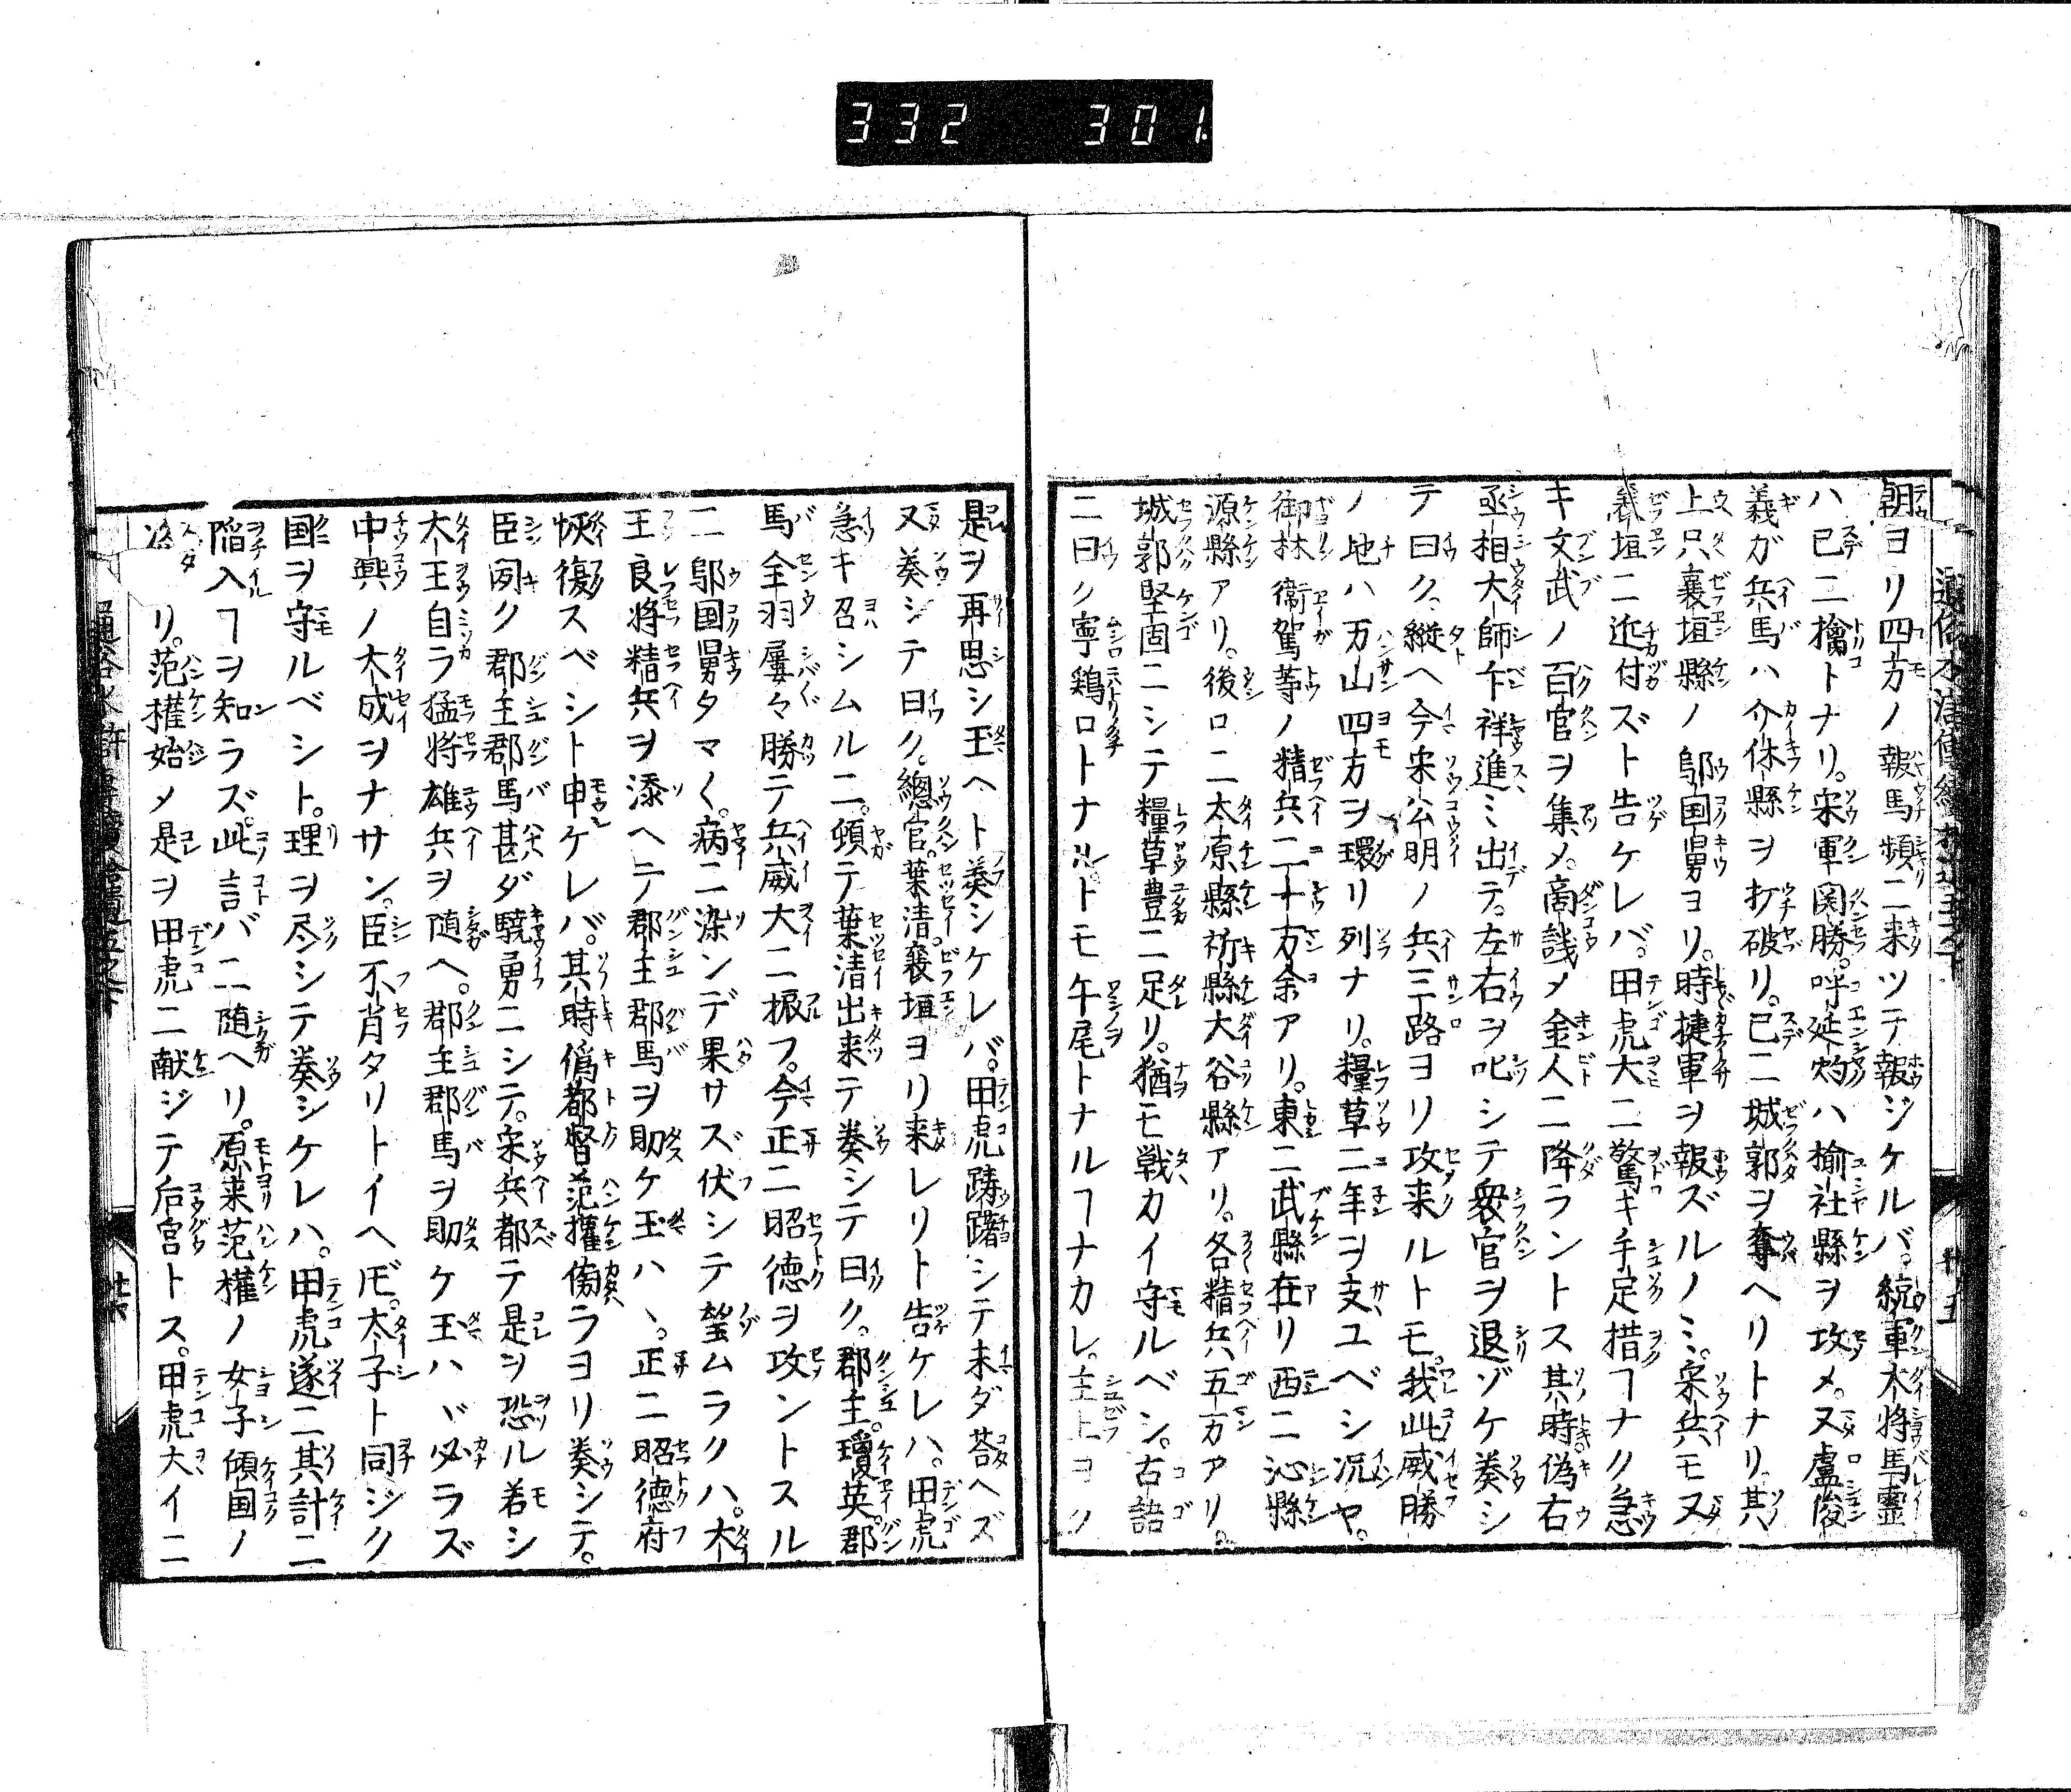 332 301
朝ヨリ四方ノ報馬頻ニ来ツテ報ジケルバ。統軍大将馬霊
ハ已ニ擒トナリ。宋軍関勝。呼延灼ハ榆社縣ヲ攻メ。又盧俊
義ガ兵馬ハ介休縣ヲ打破リ。已ニ城郭ヲ奪ヘリトナリ。其
上只襄垣縣ノ鄔国舅ヨリ。時捷軍ヲ報ズルノミ。宋兵モ又
襄垣ニ近付ズト告ケレバ。田虎大ニ驚キ手足措ヿナク急
キ文武ノ百官ヲ集メ。商議メ金人ニ降ラントス其時偽右
丞相大師卞祥進ミ出テ。左右ヲ叱シテ衆官ヲ退ゾケ奏シ
テ曰ク。縦ヘ今宋公明ノ兵三路ヨリ攻来ルトモ。我此威勝
ノ地ハ万山四方ヲ環リ列ナリ。糧草二年ヲ支ユベシ况ヤ。
御林衛駕等ノ精兵二十万余アリ。東ニ武縣在リ西ニ沁縣
源縣アリ。後ロニ太原縣祈縣大谷縣アリ。各精兵五万アリ。
城郭堅固ニシテ糧草豊ニ足リ。猶モ戦カイ守ルベシ。古語
ニ曰ク寧鶏ロトナルトモ午尾トナルヿナカレ。主上ヨク
是ヲ再思シ玉ヘト奏シケレバ。田虎躊躇シテ未ダ荅ヘズ
又奏シテ曰ク。總官。葉清。襄垣ヨリ来レリト告ケレハ。田虎
急キ召シムルニ。頓テ葉清出来テ奏シテ曰ク。郡主。瓊英。郡
馬全羽屢々勝テ兵威大ニ振フ。今正ニ昭德ヲ攻ントスル
ニ鄔国舅タマ〱。病ニ染ンデ果サズ伏シテ望ムラクハ。大
王良将精兵ヲ添ヘテ郡主郡馬ヲ助ケ玉ハヽ。正ニ昭徳府
恢復スベシト申ケレバ。其時偽都督范權傍ラヨリ奏シテ。
臣聞ク郡主郡馬甚ダ驍勇ニシテ。宋兵都テ是ヲ恐ル若シ
大王自ラ猛将雄兵ヲ随ヘ。郡主郡馬ヲ助ケ玉ハヾ必ラズ
中興ノ大成ヲナサン。臣不肖タリトイヘ𪜈。太子ト同ジク
国ヲ守ルベシト。理ヲ尽シテ奏シケレハ。田虎遂ニ其計ニ
陥入ヿヲ知ラズ。此言バニ随ヘリ。原来范權ノ女子傾国ノ
姿リ。范權始メ是ヲ田虎ニ献ジテ后宮トス。田虎大イニ